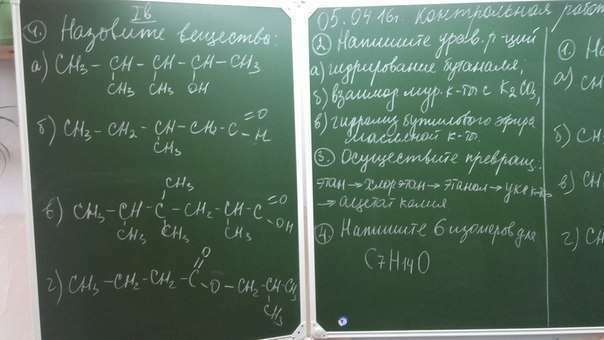 IВ
Ч. Назовите вещество:
а) CH3 – CH – CH – CH – CH3
CH3 CH3 OH
б) CH3 – CH2 – CH – CH2 – C =O
H
CH3
CH3
в) CH3 – CH – C – CH2 – CH – C =O
OH
CH3 CH3 CH3
O
г) CH3 – CH2 – CH2 – C – O – CH2 – CH – CH3
CH3
05.04.16г. Контрольная работ
2. Напишите урав. р-ций
а) гидрирование бутаналя;
б) взаимод. мур. к-ты с K2CO3;
в) гидролиз бутилового эфира
масляной к-ты.
3. Осуществите превращ.:
этан → хлорэтан → этанол → укс к-та
→ ацетат калия
4. Напишите 6 изомеров для
C7H14O
1. На
а) CH
б) CH
в) CH
г) CH